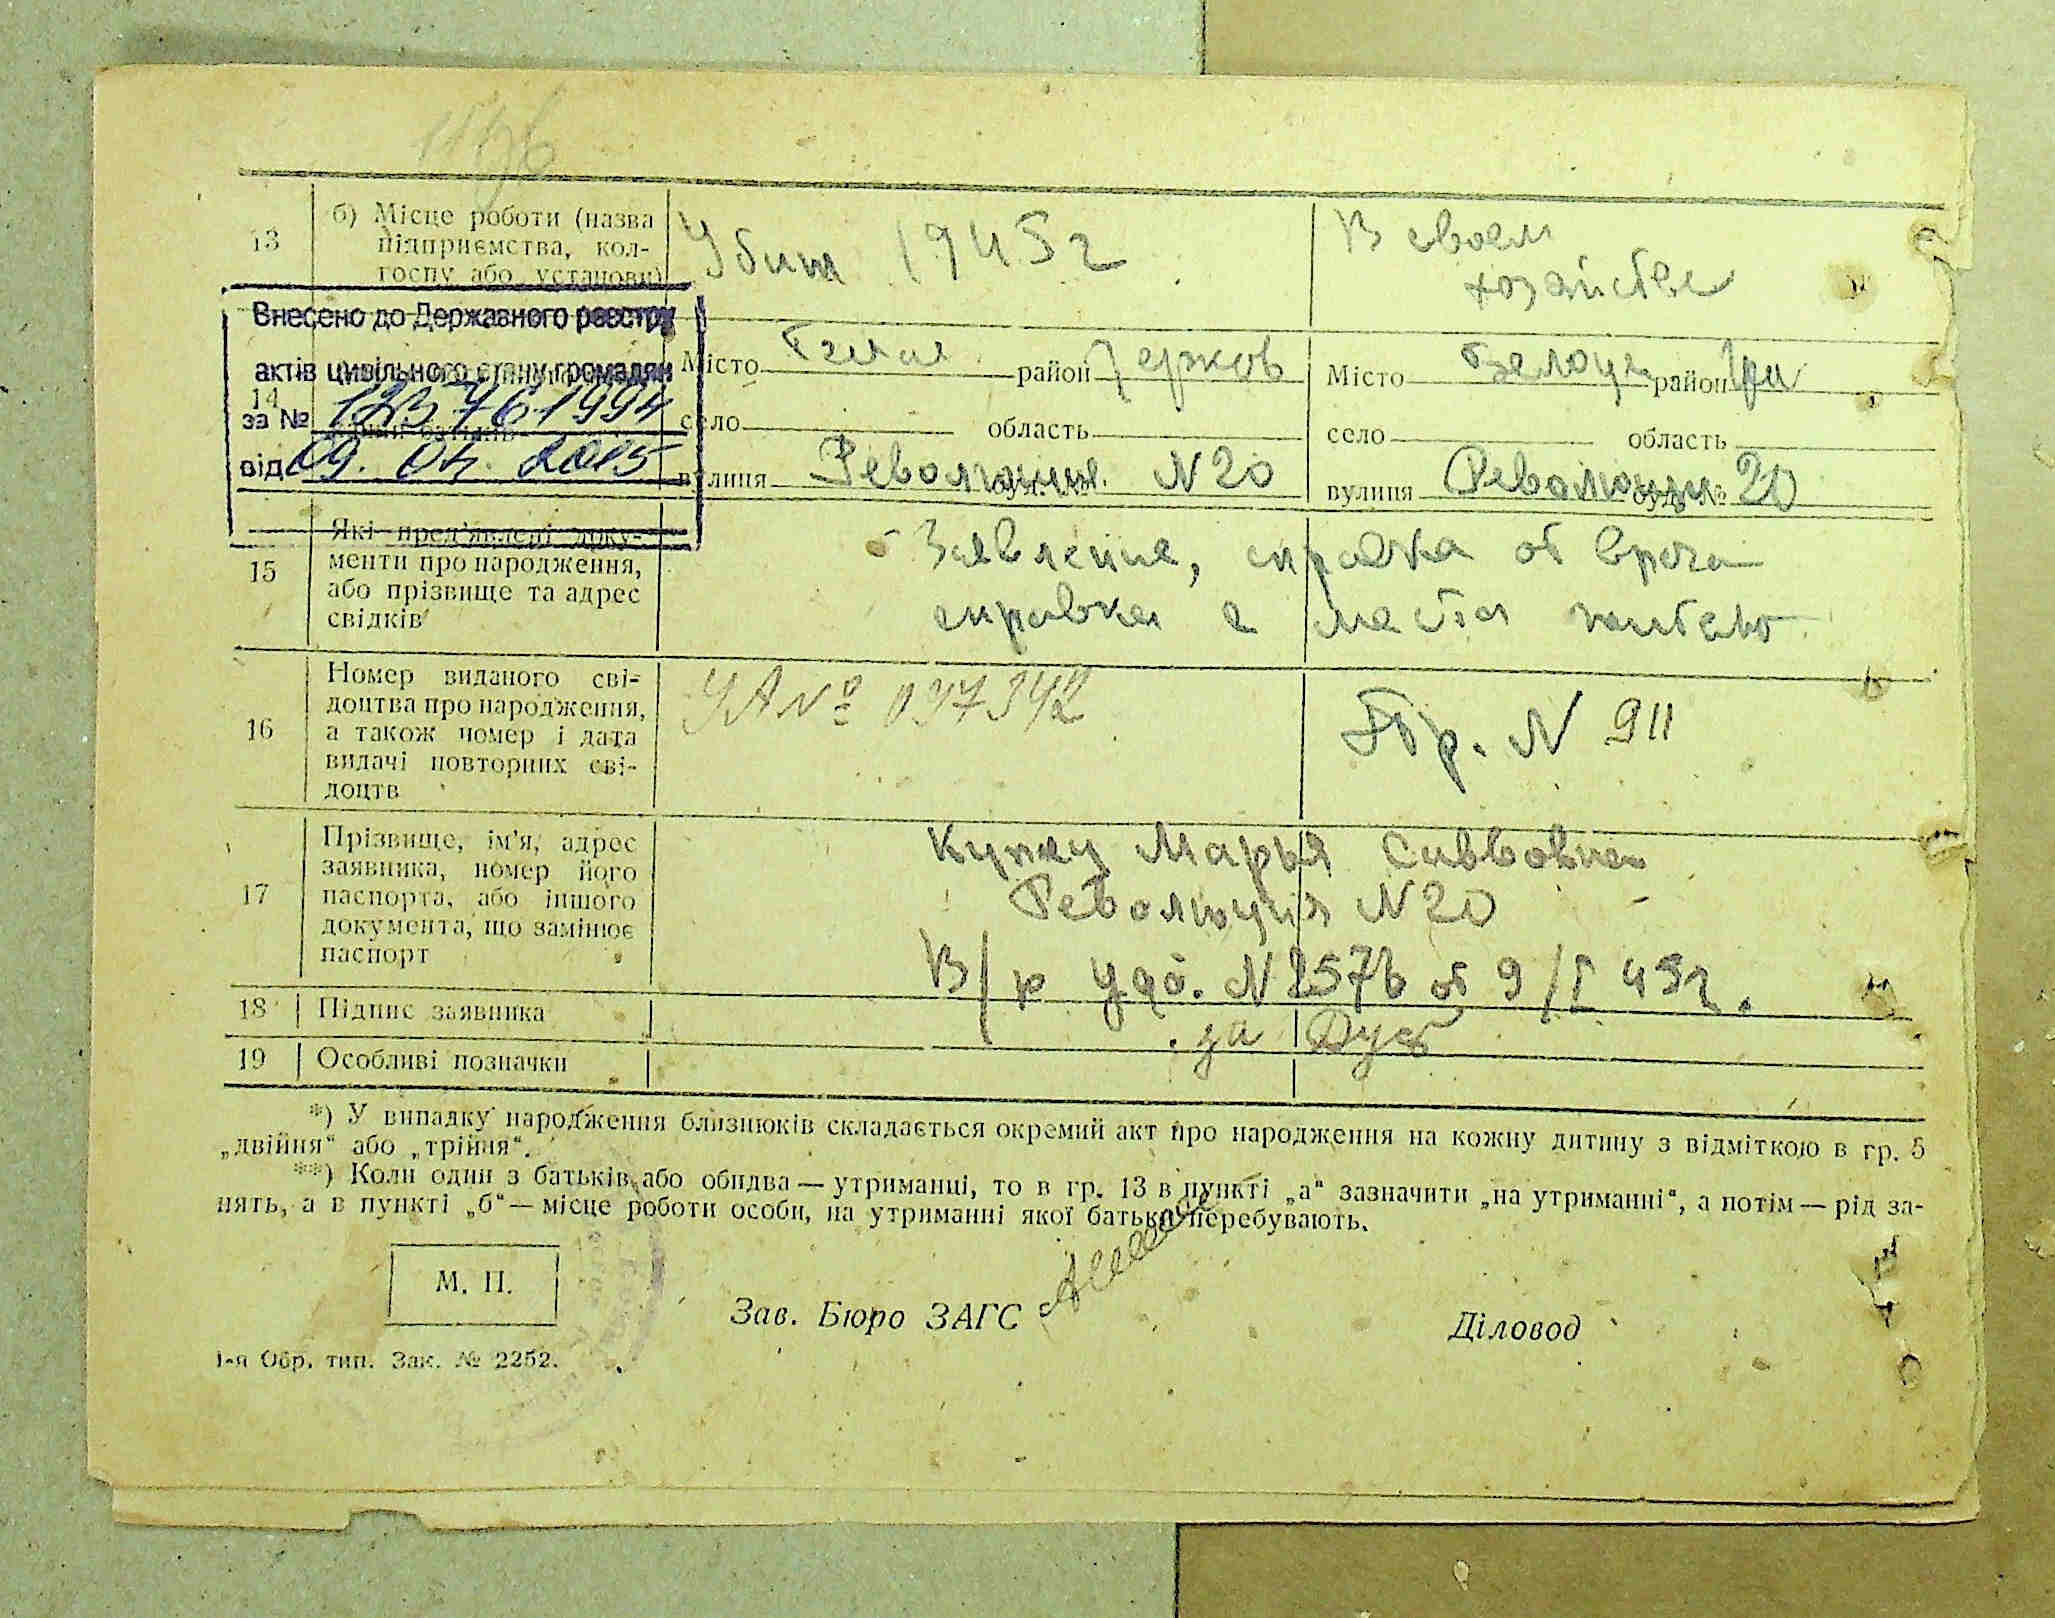 13
б) Місце роботи (назва
підприємства, кол-
госпу або установи)
Убит 1945 г
В своем
хозяйстве
Внесено до Державного реєстру
актів цивільного стану громадян
за №
від 09. 04. 2015
14
Місто район
село область
вулиця Революции N 20
Місто район
село область
вулиця Революции буд. № 20
15
Які пред'явлені доку-
менти про народження,
або прізвище та адрес
свідків
Заявление, справка от врача
справка с места
16
Номер виданого сві-
доцтва про народження,
а також номер і дата
видачі повторних сві-
доцтв
УА № 037342
Бр. N 911
17
Прізвище, ім'я, адрес
заявника, номер його
паспорта, або іншого
документа, що замінює
паспорт
Марья Саввовна
Революция N 20
В/р удо. N 2576 от 9/I 45г.
18 Підпис заявника
за
19 Особливі позначки
*) У випадку народження близнюків складається окремий акт про народження на кожну дитину з відміткою в гр. 5
„двійня“ або „трійня“.
**) Коли один з батьків або обидва — утриманці, то в гр. 13 в пункті „а“ зазначити „на утриманні“, а потім — рід за-
нять, а в пункті „б“ — місце роботи особи, на утриманні якої батьки перебувають.
М. П.
Зав. Бюро ЗАГС
Діловод
1-я Обр. тип. Зак. № 2252.